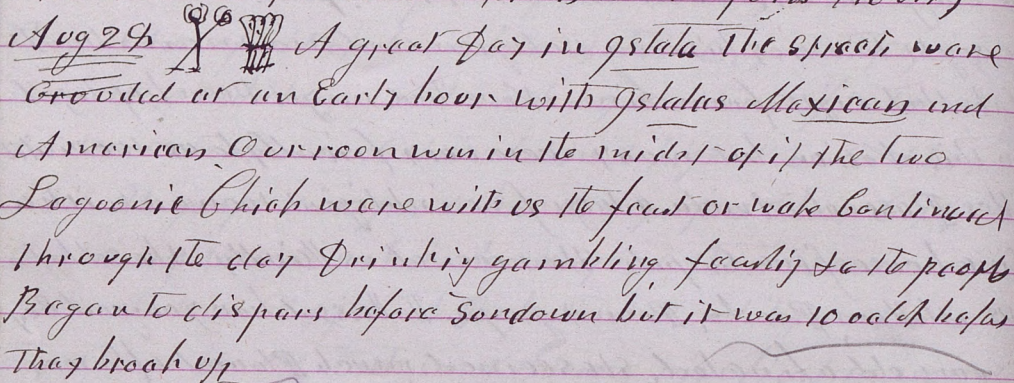 Aug 28 A great Day in Isleta The streets ware
Crouded at an Early hour with Isletas Mexican and
American Our room was in the midst of it the two
Lagoonie Chiefs ware with us the feast or wake Continued
through the day Drinking gambling feasting &c the people
Began to dispars before Sondown but it was 10 oclk before
They break up